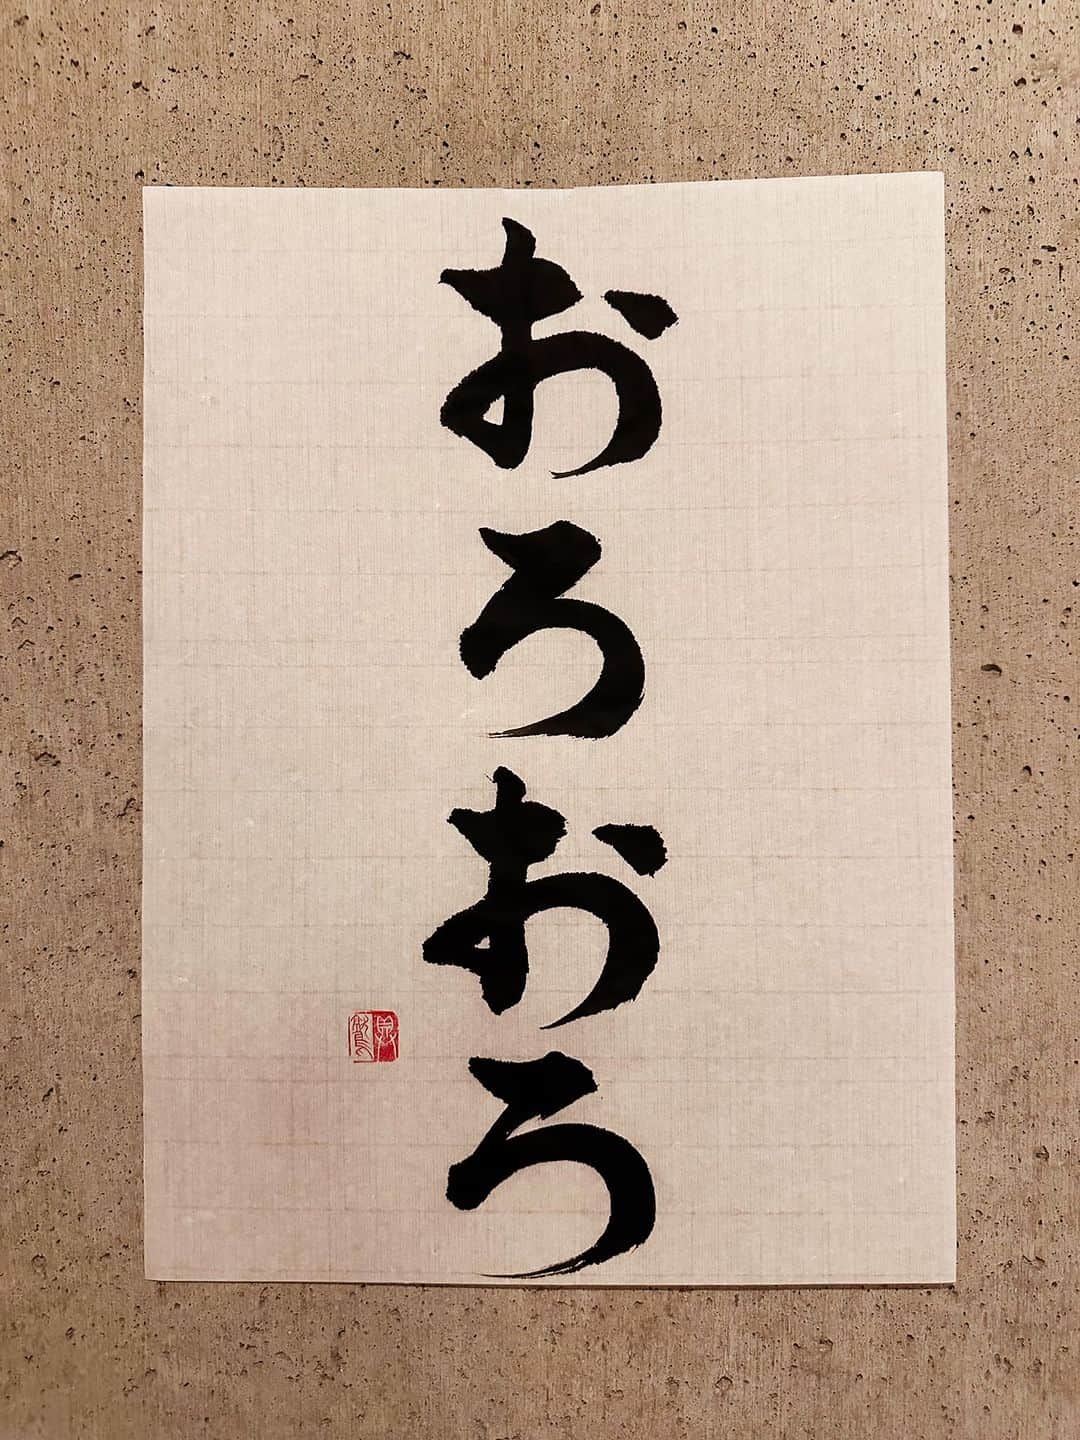 おろおろ